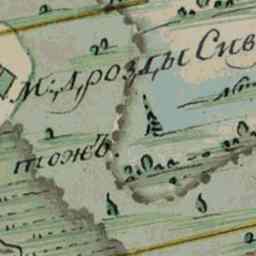 М: Дрозды Сив
тожъ.